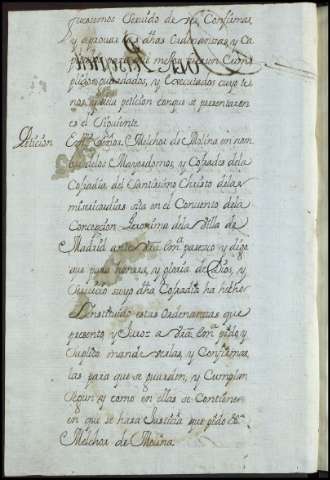 fuesemos Servido de las Confirmar
y aprovar las dhas Ordenanzas, y Ca
pitulos
plidos guardados, y Executados cuyo te
nor, y dela peticion con que se presentaron
es el siguiente
Peticion
Exmo Señor Melchor de Molina en nom
bre delos Mayordomos, y Cofrades dela
Cofradia del Santisimo Christo delas
misericordias sita en el Convento dela
Concepcion Geronima de la Villa de
Madrid ante Vra Ema parezco y digo
que para honrra, y gloria de Dios, y
Servicio suyo dha Cofradia ha hecho
Instituido estas Ordenanzas que
presento y Juro: a Vra Ema pido y
suplico mande verlas, y Confirmar
las para que se guarden, y Cumplan
segun y como en ellas se Contiene
en que se hara Justicia que pido &a
Melchor de Molina.